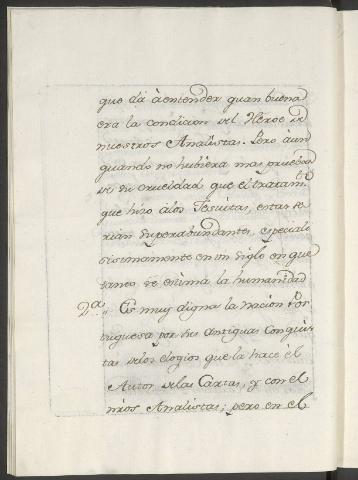 que dà à entender quan buena
era la condicion del Heroe de
nuestros Analistas. Pero aun
quando no hubiera mas pruebas
de su crueldad que el tratam.to
que hizo alos Jesuitas, estas se-
rian superabundantes, especiali-
sisimamente en un siglo en que
tanto se estima la humanidad
2.a Es muy digna la Nacion Por-
tuguesa por sus antiguas Conquis-
tas delos elogios que la hace el
Autor delas Cartas, y con el
nros Analistas; pero en el